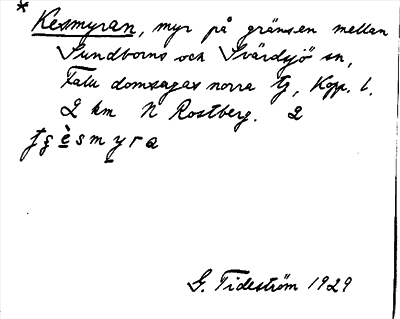 * Kesmyran, myr på gränsen mellan
Sundborns och Svärdsjö sn,
Falu domsagas norra tg, Kopp. l.
2 km N Rostberg. 2
èsmyra
G. Tideström 1929